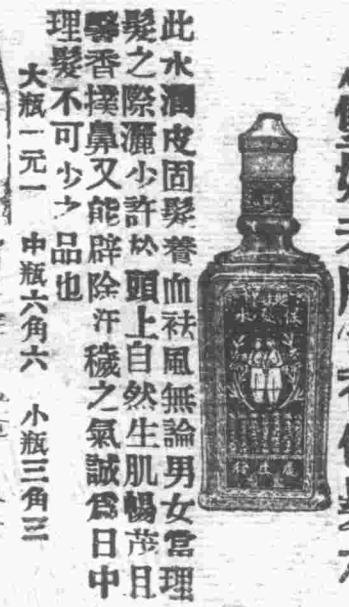 廣生行
此水潤皮固髮養血袪風無論男女當理
髮之際灑少許於頭上自然生肌暢茂且
馨香撲鼻又能辟除汗穢之氣誠爲日中
理髮不可少之品也
大瓶一元一 中瓶六角六 小瓶三角三